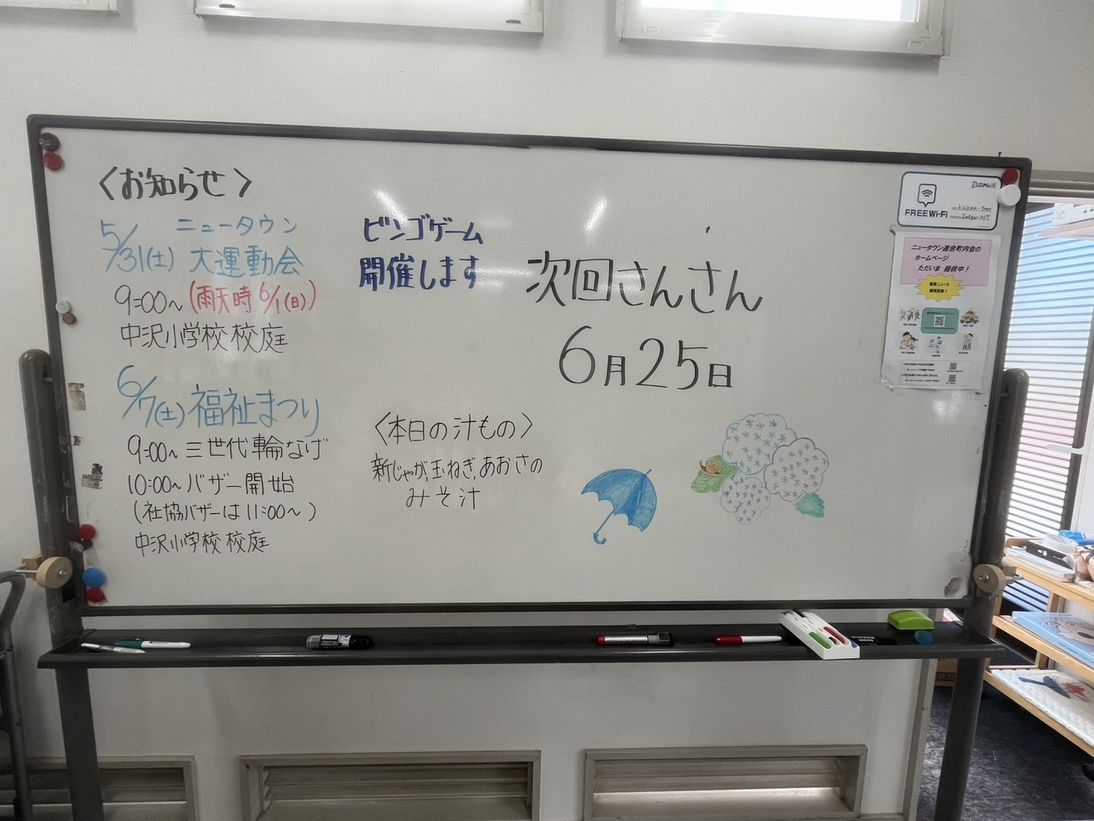 〈お知らせ〉
5/31(土) ニュータウン
大運動会
9:00～(雨天時6/1(日))
中沢小学校校庭
6/7(土)福祉まつり
9:00～三世代輪なげ
10:00～バザー開始
(社協バザーは11:00～)
中沢小学校校庭
ビンゴゲーム
開催します
〈本日の汁もの〉
新じゃが、玉ねぎ、あおさの
みそ汁
次回さんさん
6月25日
FREE Wi-Fi
ニュータウン連合町内会の
ホームページ
ただいま 提供中!